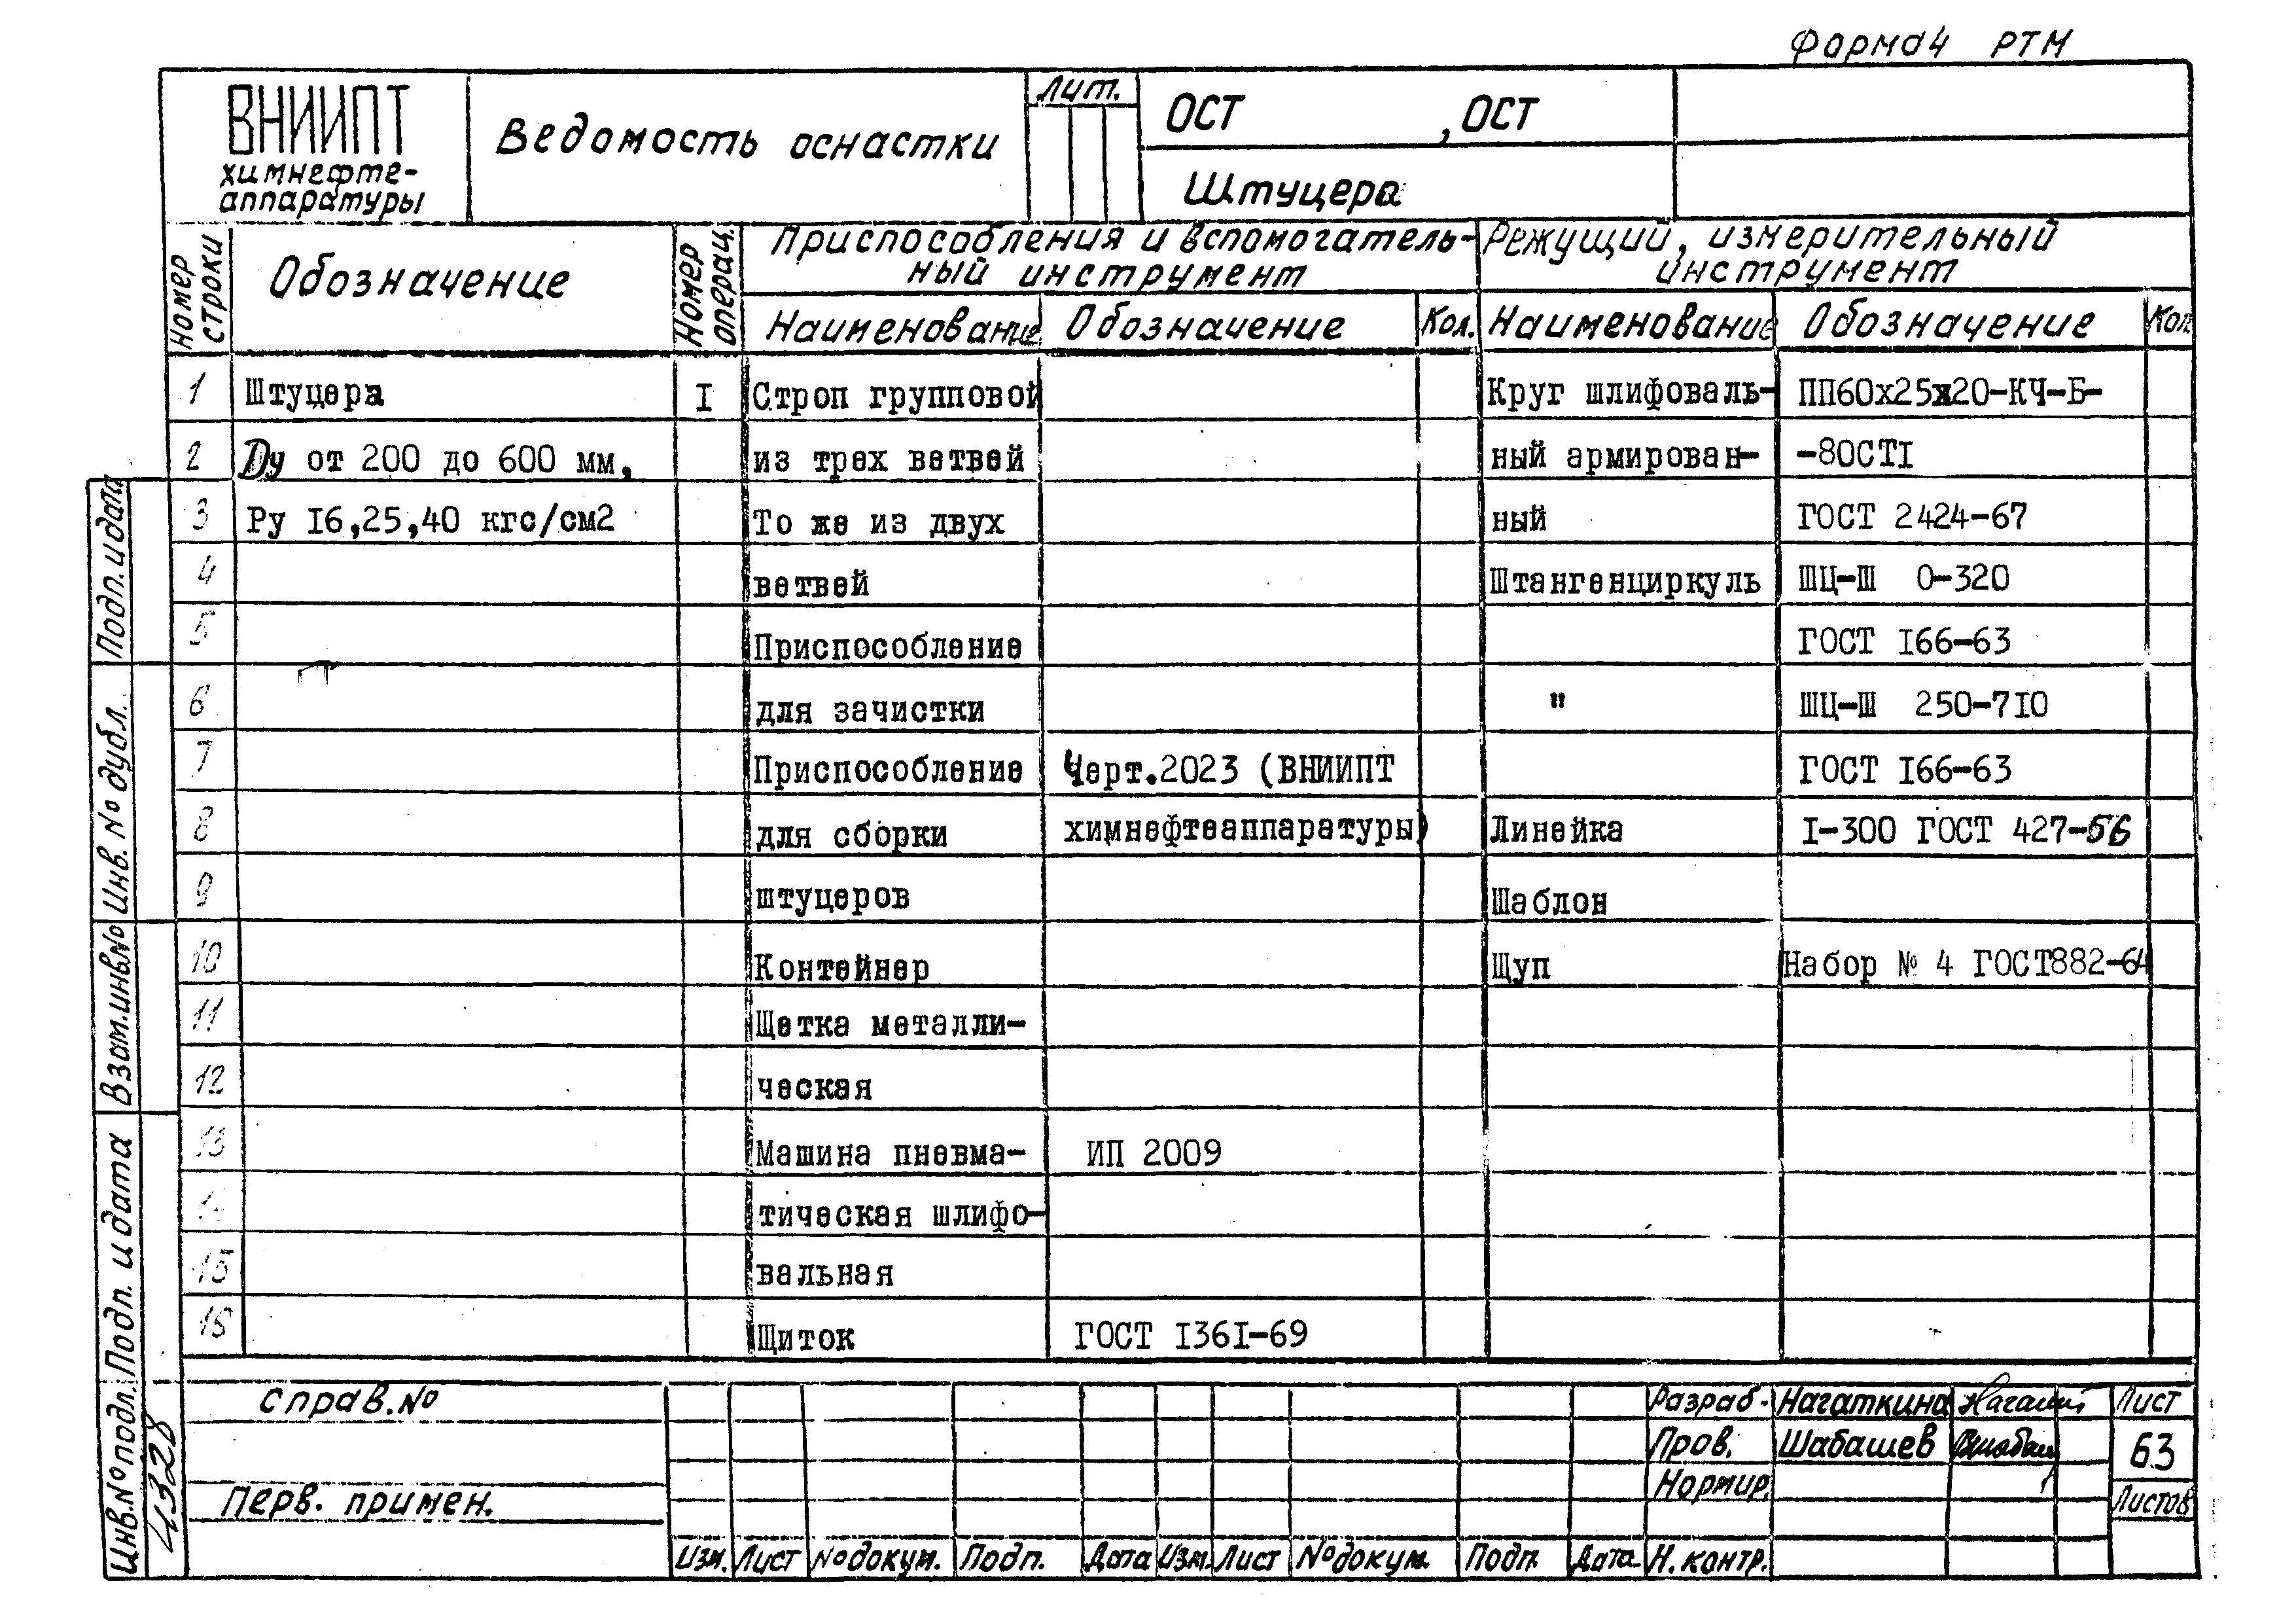 Форма 4 РТМ
ВНИИПТ
химнефте-
аппаратуры
Ведомость оснастки
Лит.
ОСТ , ОСТ
Штуцера
Номер строки
Обозначение
Номер операц.
Приспособления и вспомогатель-
ный инструмент
Режущий, измерительный
инструмент
Наименование Обозначение Кол. Наименование Обозначение Кол.
1 Штуцера I Строп групповой Круг шлифоваль- ПП60х25х20-КЧ-Б-
2 Dу от 200 до 600 мм, из трех ветвей ный армирован- -80СТI
3 Ру I6,25,40 кгс/см2 То же из двух ный ГОСТ 2424-67
4 ветвей Штангенциркуль ШЦ-Ш 0-320
5 Приспособление ГОСТ I66-63
6 для зачистки " ШЦ-Ш 250-7I0
7 Приспособление Черт.2023 (ВНИИПТ ГОСТ I66-63
8 для сборки химнефтеаппаратуры) Линейка I-300 ГОСТ 427-56
9 штуцеров Шаблон
10 Контейнер Щуп Набор № 4 ГОСТ882-64
11 Щетка металли-
12 ческая
13 Машина пневма- ИП 2009
14 тическая шлифо-
15 вальная
16 Щиток ГОСТ I36I-69
Подп. и дата
Инв. № дубл.
Взам. инв №
Подп. и дата
Инв. № подл.
4328
Справ. №
Перв. примен.
Изм. Лист № докум. Подп. Дата Изм. Лист № докум. Подп. Дата
Разраб. Нагаткина
Пров. Шабашев
Нормир.
Н. контр.
Лист
63
Листов